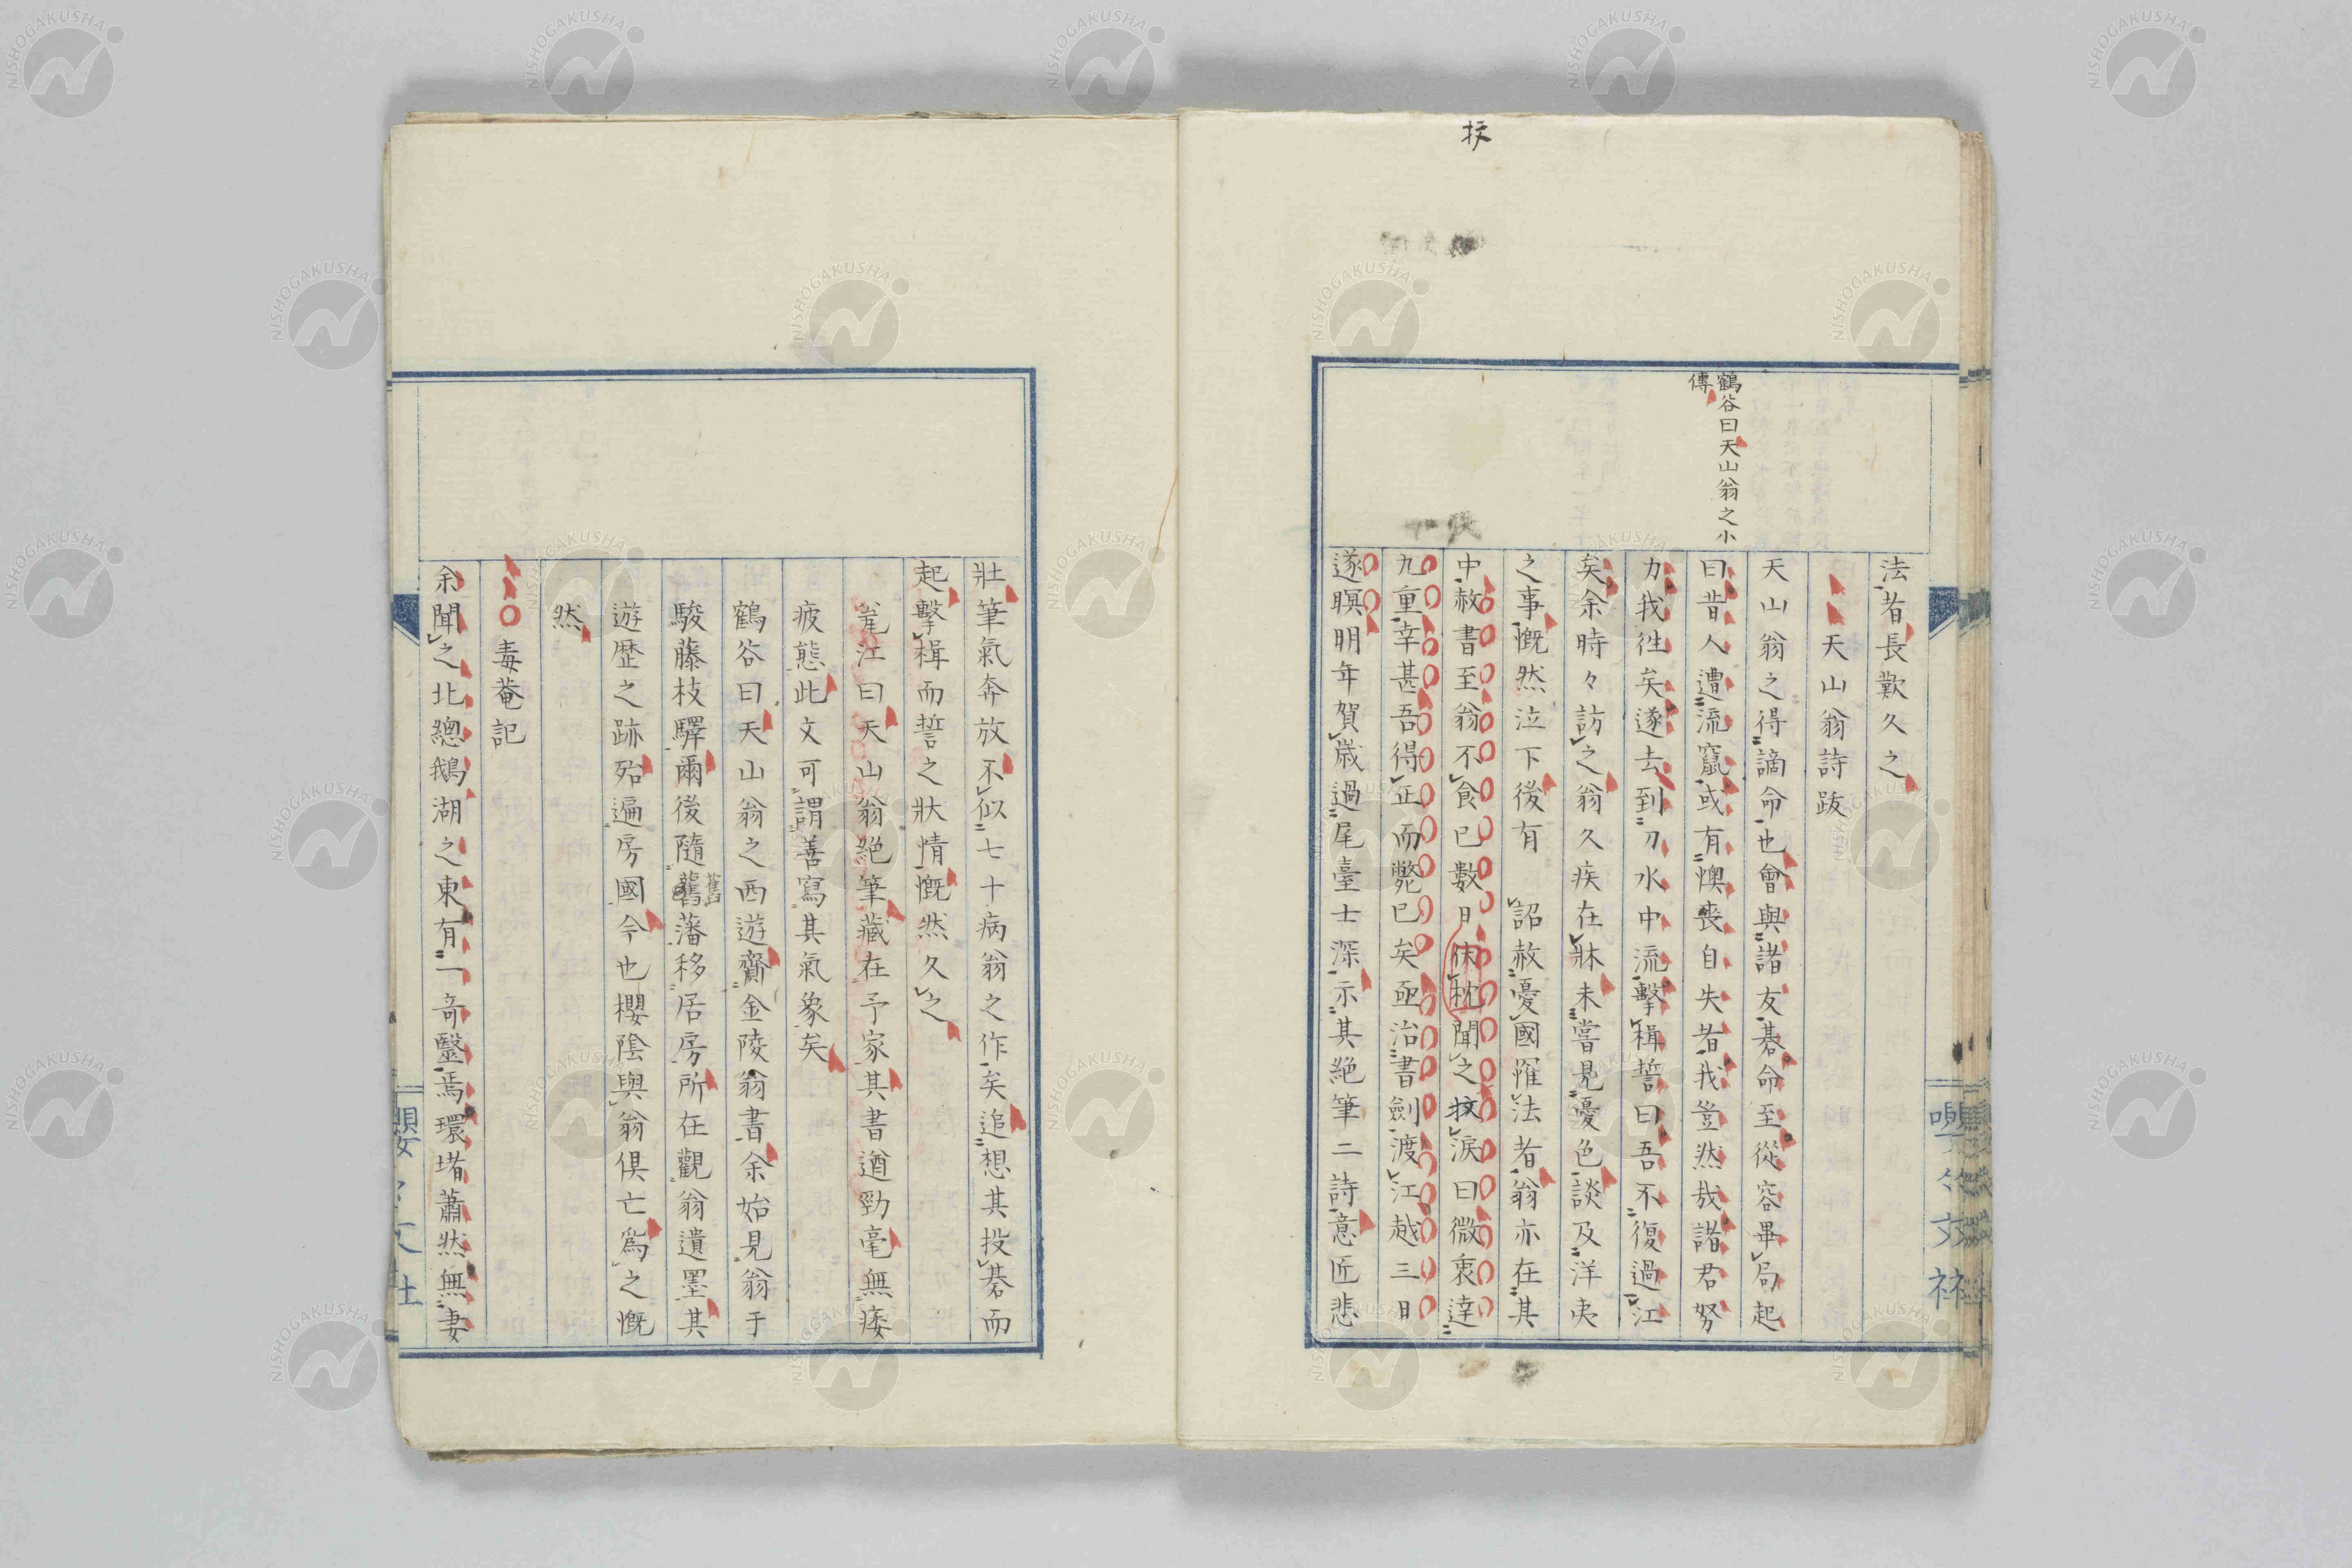 抆
鶴谷曰天山翁之小
傳
法者長歎久之
天山翁詩跋
天山翁之得謫命也會與諸友碁命至從容畢局起
曰昔人遭流竄或有懊喪自失者我豈然哉諸君努
力我徃矣遂去到刀水中流擊楫誓曰吾不復過江
矣余時々訪之翁久疾在牀未嘗見憂色談及洋夷
之事慨然泣下後有　詔赦憂國罹法者翁亦在其
中赦書至翁不食已數日伏枕聞之抆淚曰微衷達
九重幸甚吾得正而斃已矣亟治書劍渡江越三日
遂瞑明年賀歲過尾臺士深示其絕筆二詩意匠悲
壯筆氣奔放不似七十病翁之作矣追想其投碁而
起擊楫而誓之狀情慨然久之
瓮江曰天山翁絕筆藏在予家其書遒勁毫無痿
疲態此文可謂善寫其氣象矣
鶴谷曰天山翁之西遊齎金陵翁書余始見翁于
駿藤枝驛爾後隨舊藩移居房所在觀翁遺墨其
舊
遊歴之跡殆遍房國今也櫻陰與翁俱亡爲之慨
然
毒菴記
余聞之北總鵝湖之東有一奇毉焉環堵蕭然無妻
NISHOGAKUSHA